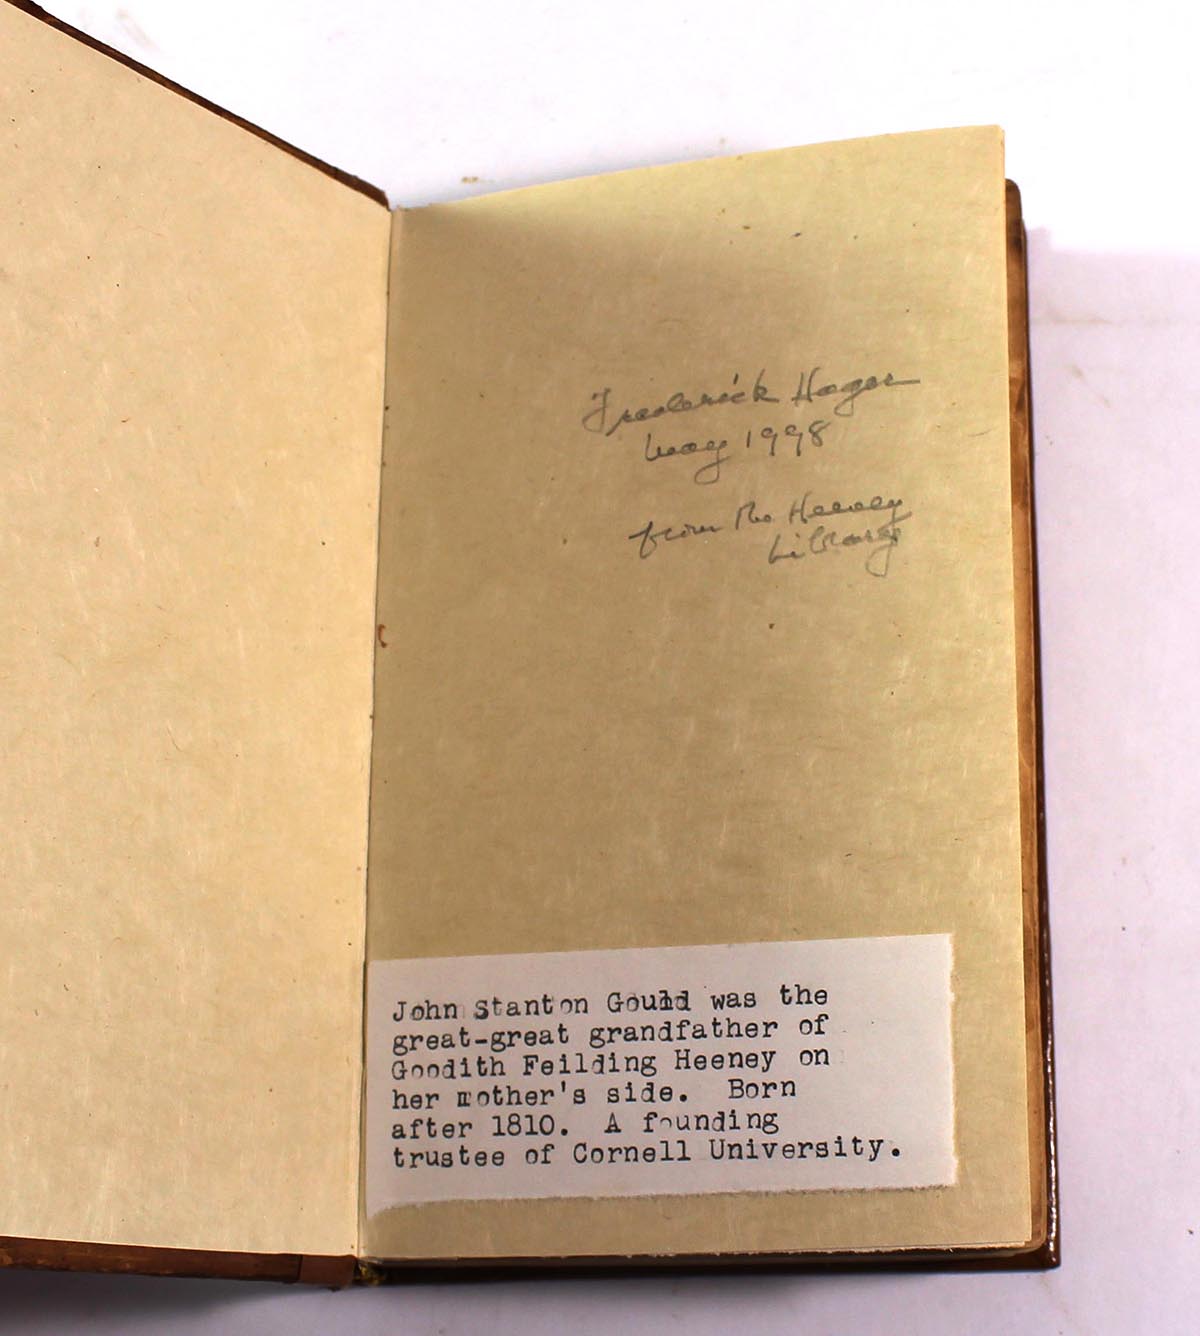 Frederick Hager
May 1998
from the Heeney
Library
John Stanton Gould was the
great-great grandfather of
Goodith Feilding Heeney on
her mother's side. Born
after 1810. A founding
trustee of Cornell University.